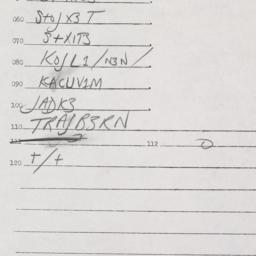 060 StojX3T
070 StXIT3
080 KojL1/N3N/
090 KACUV1M
100 JADK3
110 TRAJB3RN
112 O
120 +/+